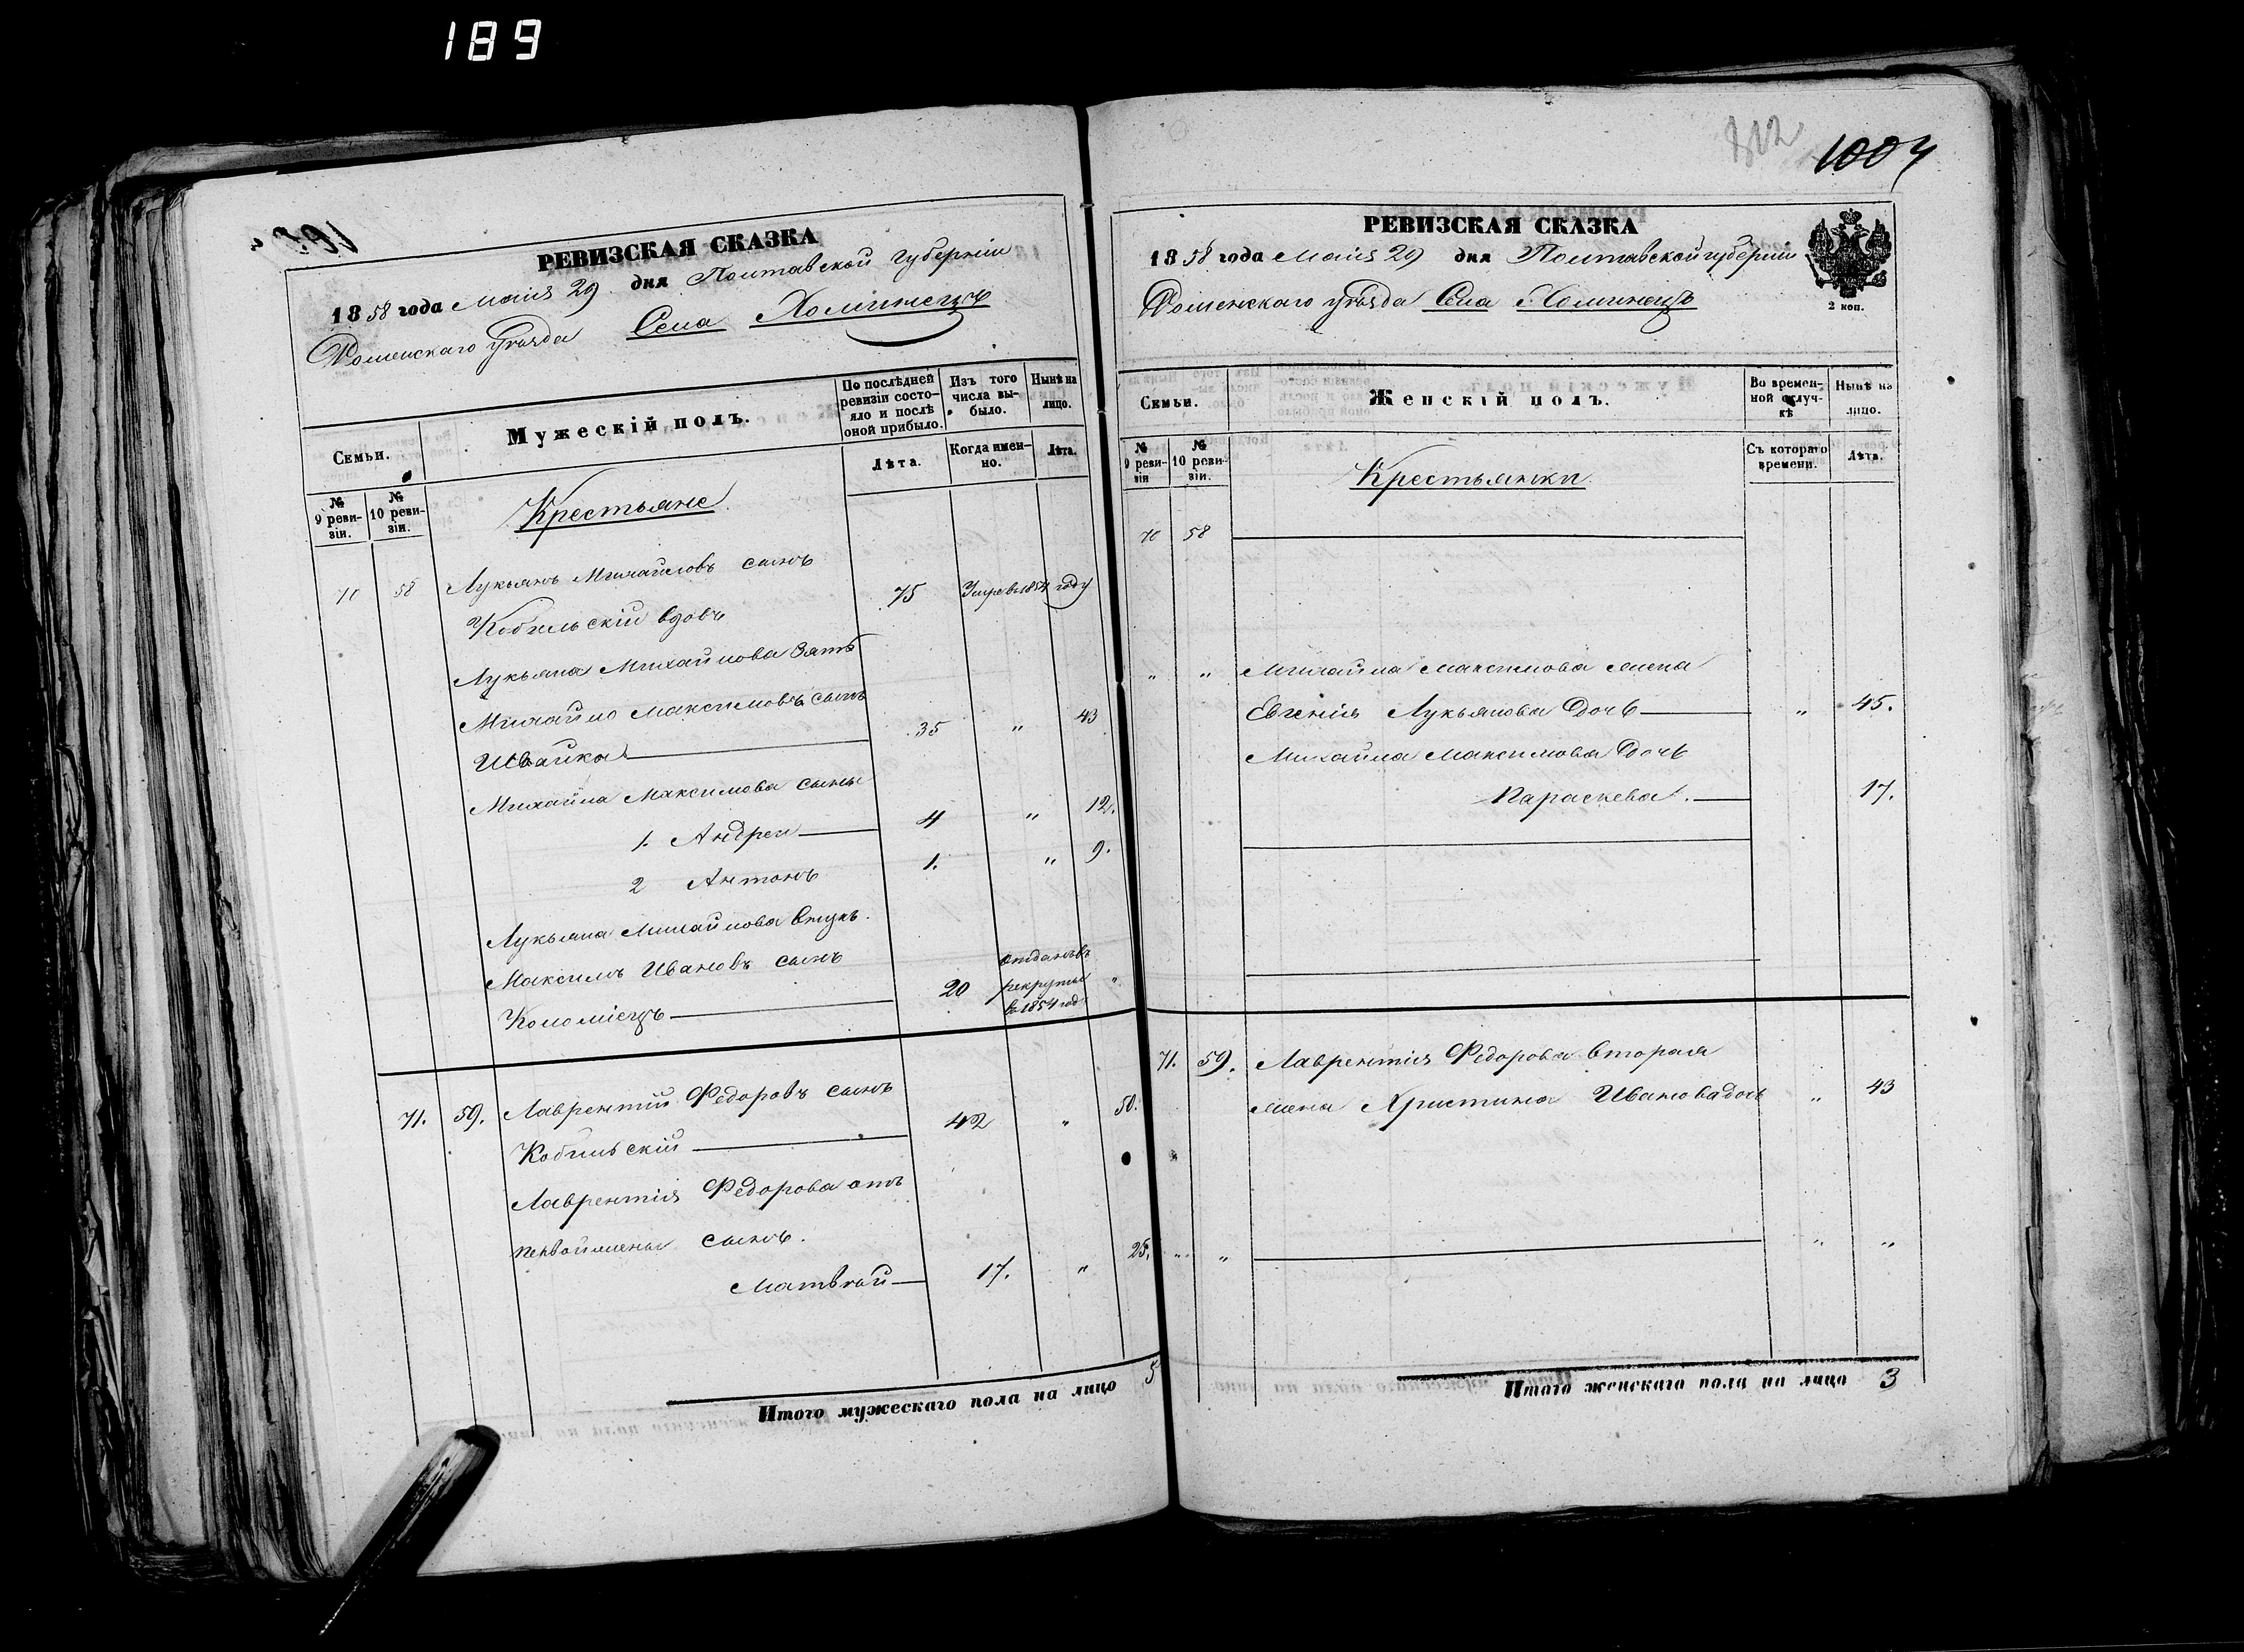 189
РЕВИЗСКАЯ СКАЗКА
1858 года Маія 29 дня Полтавской губерніи
Роменскаго уѣзда Села Хоминецъ
Семьи.
Мужескій полъ.
По послѣдней ревизіи состояло и послѣ оной прибыло.
Изъ того числа выбыло.
Нынѣ на лицо.
№ 9 ревизіи.
№ 10 ревизіи.
Лѣта.
Когда именно.
Лѣта.
Крестьяне
70 58 Лукьянъ Михайловъ сынъ
Кобильскій вдовъ 75 Умре въ 1854 году
Лукьяна Михайлова зять
Михайло Максимовъ сынъ
Швайка 35 " 43
Михайла Максимова сыны
1. Андрей 4 " 12.
2 Антонъ 1. " 9.
Лукьяна Михайлова внукъ.
Максимъ Ивановъ сынъ
Коломіецъ 20 отданъ въ рекруты въ 1854 год "
71. 59. Лаврентій Федоровъ сынъ
Кобильскій 42 " 50.
Лаврентія Федорова отъ
первой жены сынъ.
Матвѣй 17. " 25.
Итого мужескаго пола на лицо 5
312
1004
РЕВИЗСКАЯ СКАЗКА
1858 года Маія 29 дня Полтавской губерніи
2 коп.
Роменскаго уѣзда Села Хоминецъ
Семьи.
Женскій полъ.
Во временной отлучкѣ
Нынѣ на лицо.
№ 9 ревизіи
№ 10 ревизіи.
Съ котораго времени.
Лѣта.
Крестьянки
70 58
" " Михайла Максимова жена
Евгенія Лукьянова дочь " 45.
Михайла Максимова дочь
Параскева. 17.
71. 59. Лаврентія Федорова вторая
жена Христина Иванова дочь " 43
" " " "
Итого женскаго пола на лицо 3